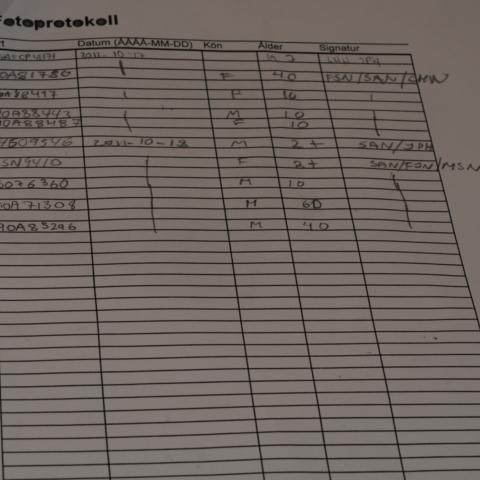 Fotoprotokoll
Datum (ÅÅÅÅ-MM-DD) Kön Ålder Signatur
2011-10-17
0A81786 F 40 FSN/SAN/
F 10
0A88443 M 10
0A88487 F 10
2011-10-18 M 2+ SAN/JPH
SN9410 F 2+ SAN/FSN/MSN
6076360 M 10
0A71308 M 60
0A85296 M 40